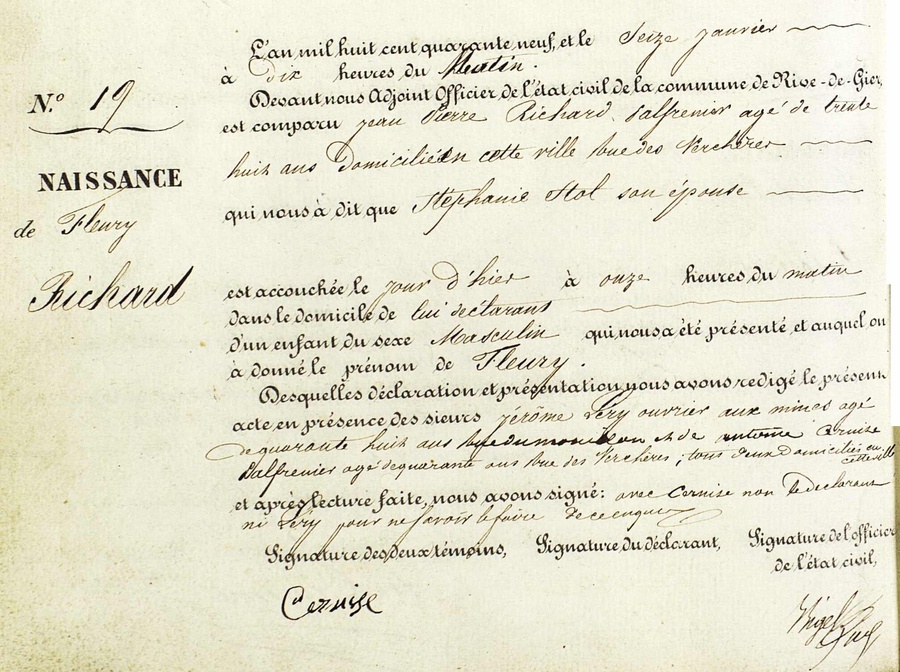 N.° 19
NAISSANCE
de Fleury
Richard
L'an mil huit cent quarante neuf, et le Seize janvier
à dix heures du Matin.
Devant nous Adjoint Officier de l'état civil de la commune de Rive-de-Gier,
est comparu jean Pierre Richard palfrenier agé de trente
huit ans Domicilié en cette ville rue des Verchères
qui nous à dit que Stéphanie Stol son épouse
est accouchée le jour d'hier à onze heures du matin
dans le domicile de lui déclarant
d'un enfant du sexe Masculin qui nous a été présenté, et auquel on
à donné le prénom de Fleury.
Desquelles déclaration et présentation nous avons redigé le présent
acte, en présence des sieurs jérôme Léry ouvrier aux mines agé
de quarante huit ans rue et de antoine Cernise
palfrenier agé de quarante ans rue des Verchères, tous deux domiciliés en
cette ville
et après lecture faite, nous avons signé: avec Cernise non le declarant
ni Léry pour ne savoir le faire de ce enquis
Signature des deux témoins, Signature du déclarant, Signature de l'officier
de l'état civil,
Cernise